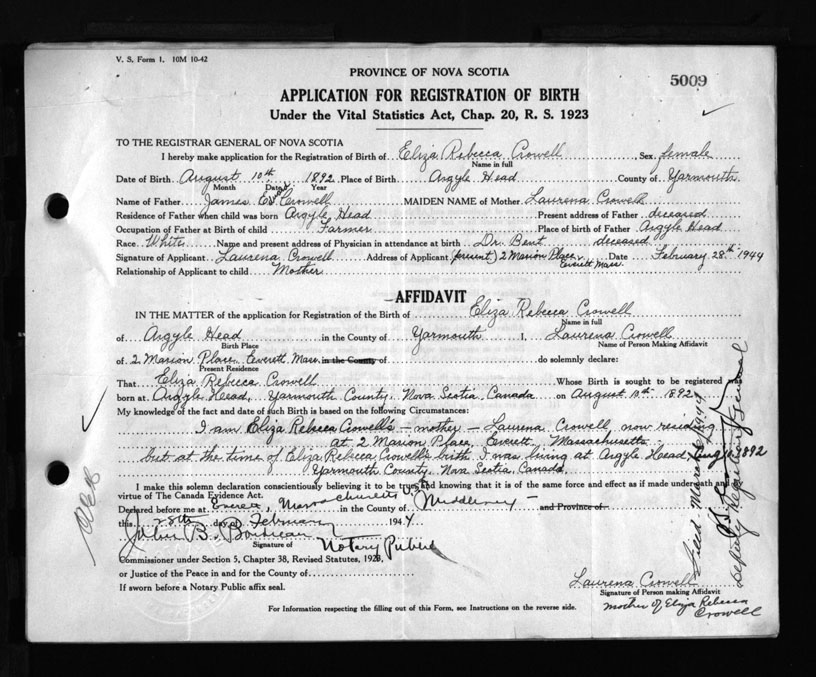 V. S. Form 1. 10M 10-42
PROVINCE OF NOVA SCOTIA
5009
APPLICATION FOR REGISTRATION OF BIRTH
Under the Vital Statistics Act, Chap. 20, R. S. 1923
TO THE REGISTRAR GENERAL OF NOVA SCOTIA
I hereby make application for the Registration of Birth of Eliza Rebecca Crowell Sex female
Name in full
Date of Birth August 10th 1892 Place of Birth Argyle Head County of Yarmouth
Month Date Year
Name of Father James Crowell MAIDEN NAME of Mother Laurena Crowell
Residence of Father when child was born Argyle Head Present address of Father deceased
Occupation of Father at Birth of child Farmer Place of birth of Father Argyle Head
Race White Name and present address of Physician in attendance at birth Dr. Bent deceased
Signature of Applicant Laurena Crowell Address of Applicant (present) 2 Marion Place, Everett Mass. Date February 28th 1944
Relationship of Applicant to child Mother
AFFIDAVIT
IN THE MATTER of the application for Registration of the Birth of Eliza Rebecca Crowell
Name in full
of Argyle Head in the County of Yarmouth I, Laurena Crowell
Birth Place Name of Person Making Affidavit
of 2 Marion Place, Everett Mass. in the County of do solemnly declare:
Present Residence
That Eliza Rebecca Crowell Whose Birth is sought to be registered was
born at Argyle Head, Yarmouth County, Nova Scotia, Canada on August 10th 1892
My knowledge of the fact and date of such Birth is based on the following Circumstances:
I am Eliza Rebecca Crowell's - mother - Laurena Crowell, now residing
at 2 Marion Place, Everett, Massachusetts
but at the time of Eliza Rebecca Crowell's birth I was living at Argyle Head, Aug 10 1892
Yarmouth County, Nova Scotia, Canada.
I make this solemn declaration conscientiously believing it to be true, and knowing that it is of the same force and effect as if made under oath and by
virtue of The Canada Evidence Act.
Declared before me at Everett, Massachusetts U.S. in the County of Middlesex - and Province of
this 28th day of February 1944
Notary Public
Signature of
Commissioner under Section 5, Chapter 38, Revised Statutes, 1923,
or Justice of the Peace in and for the County of
If sworn before a Notary Public affix seal.
Laurena Crowell
Signature of Person making Affidavit
mother of Eliza Rebecca
Crowell
For Information respecting the filling out of this Form, see Instructions on the reverse side.
Deputy Registrar General